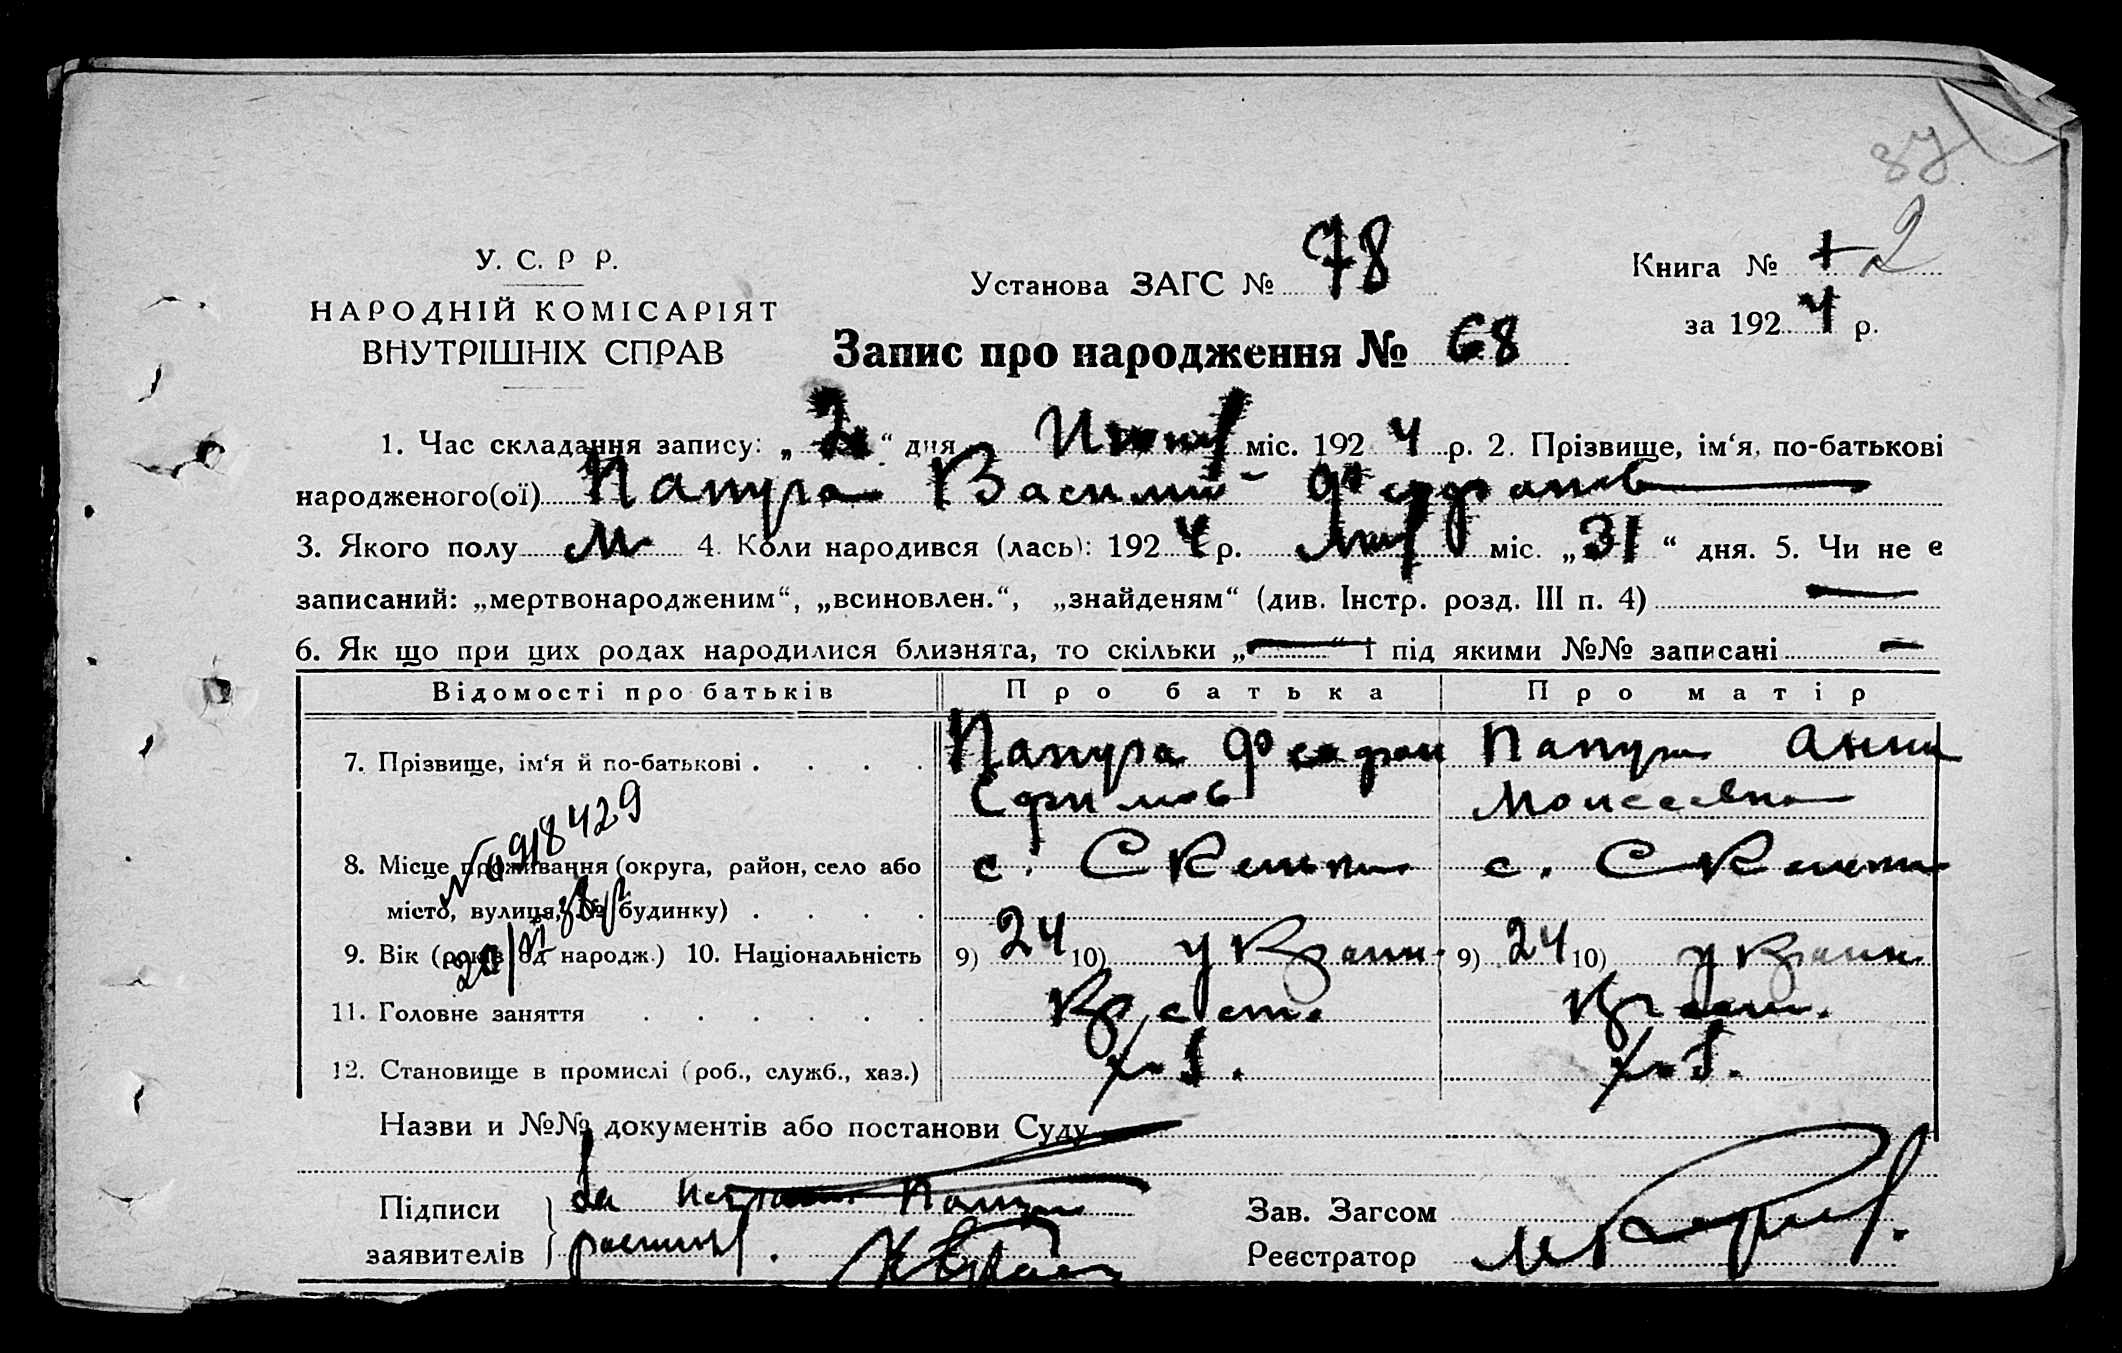 зу
У. С. Р Р.
НАРОДНІЙ КОМІСАРІЯТ
ВНУТРІШНІХ СПРАВ
Установа ЗАГС № 78
Книга № 1 2
за 1924 р.
Запис про народження № 68
1. Час складання запису: „2“ дня Июня міс. 1924 р. 2. Прізвище, ім‘я, по-батькові
народженого(ої) Папура Василий
3. Якого полу м 4. Коли народився (лась): 1924 р. Мая міс. „31“ дня. 5. Чи не є
записаний: „мертвонародженим“, „всиновлен.“, „знайденям“ (див. Інстр. розд. III п. 4) —
6. Як що при цих родах народилися близнята, то скільки „—“ і під якими №№ записані —
Відомості про батьків Про батька Про матір
7. Прізвище, ім‘я й по-батькові . . . . Папура Папура Анна
Ефимов Моисеевна
№ 918429
8. Місце проживання (округа, район, село або с. Скельки с. Скельки
місто, вулиця, № будинку) . . . .
9. Вік (років од народж.) 10. Національність 9) 24 10) Украин. 9) 24 10) Украин.
11. Головне заняття . . . . . . Крест. Крест.
12. Становище в промислі (роб., служб., хаз.) х-в. х-в.
Назви и №№ документів або постанови Суду
Підписи За Папура
заявителів
Зав. Загсом
Реєстратор